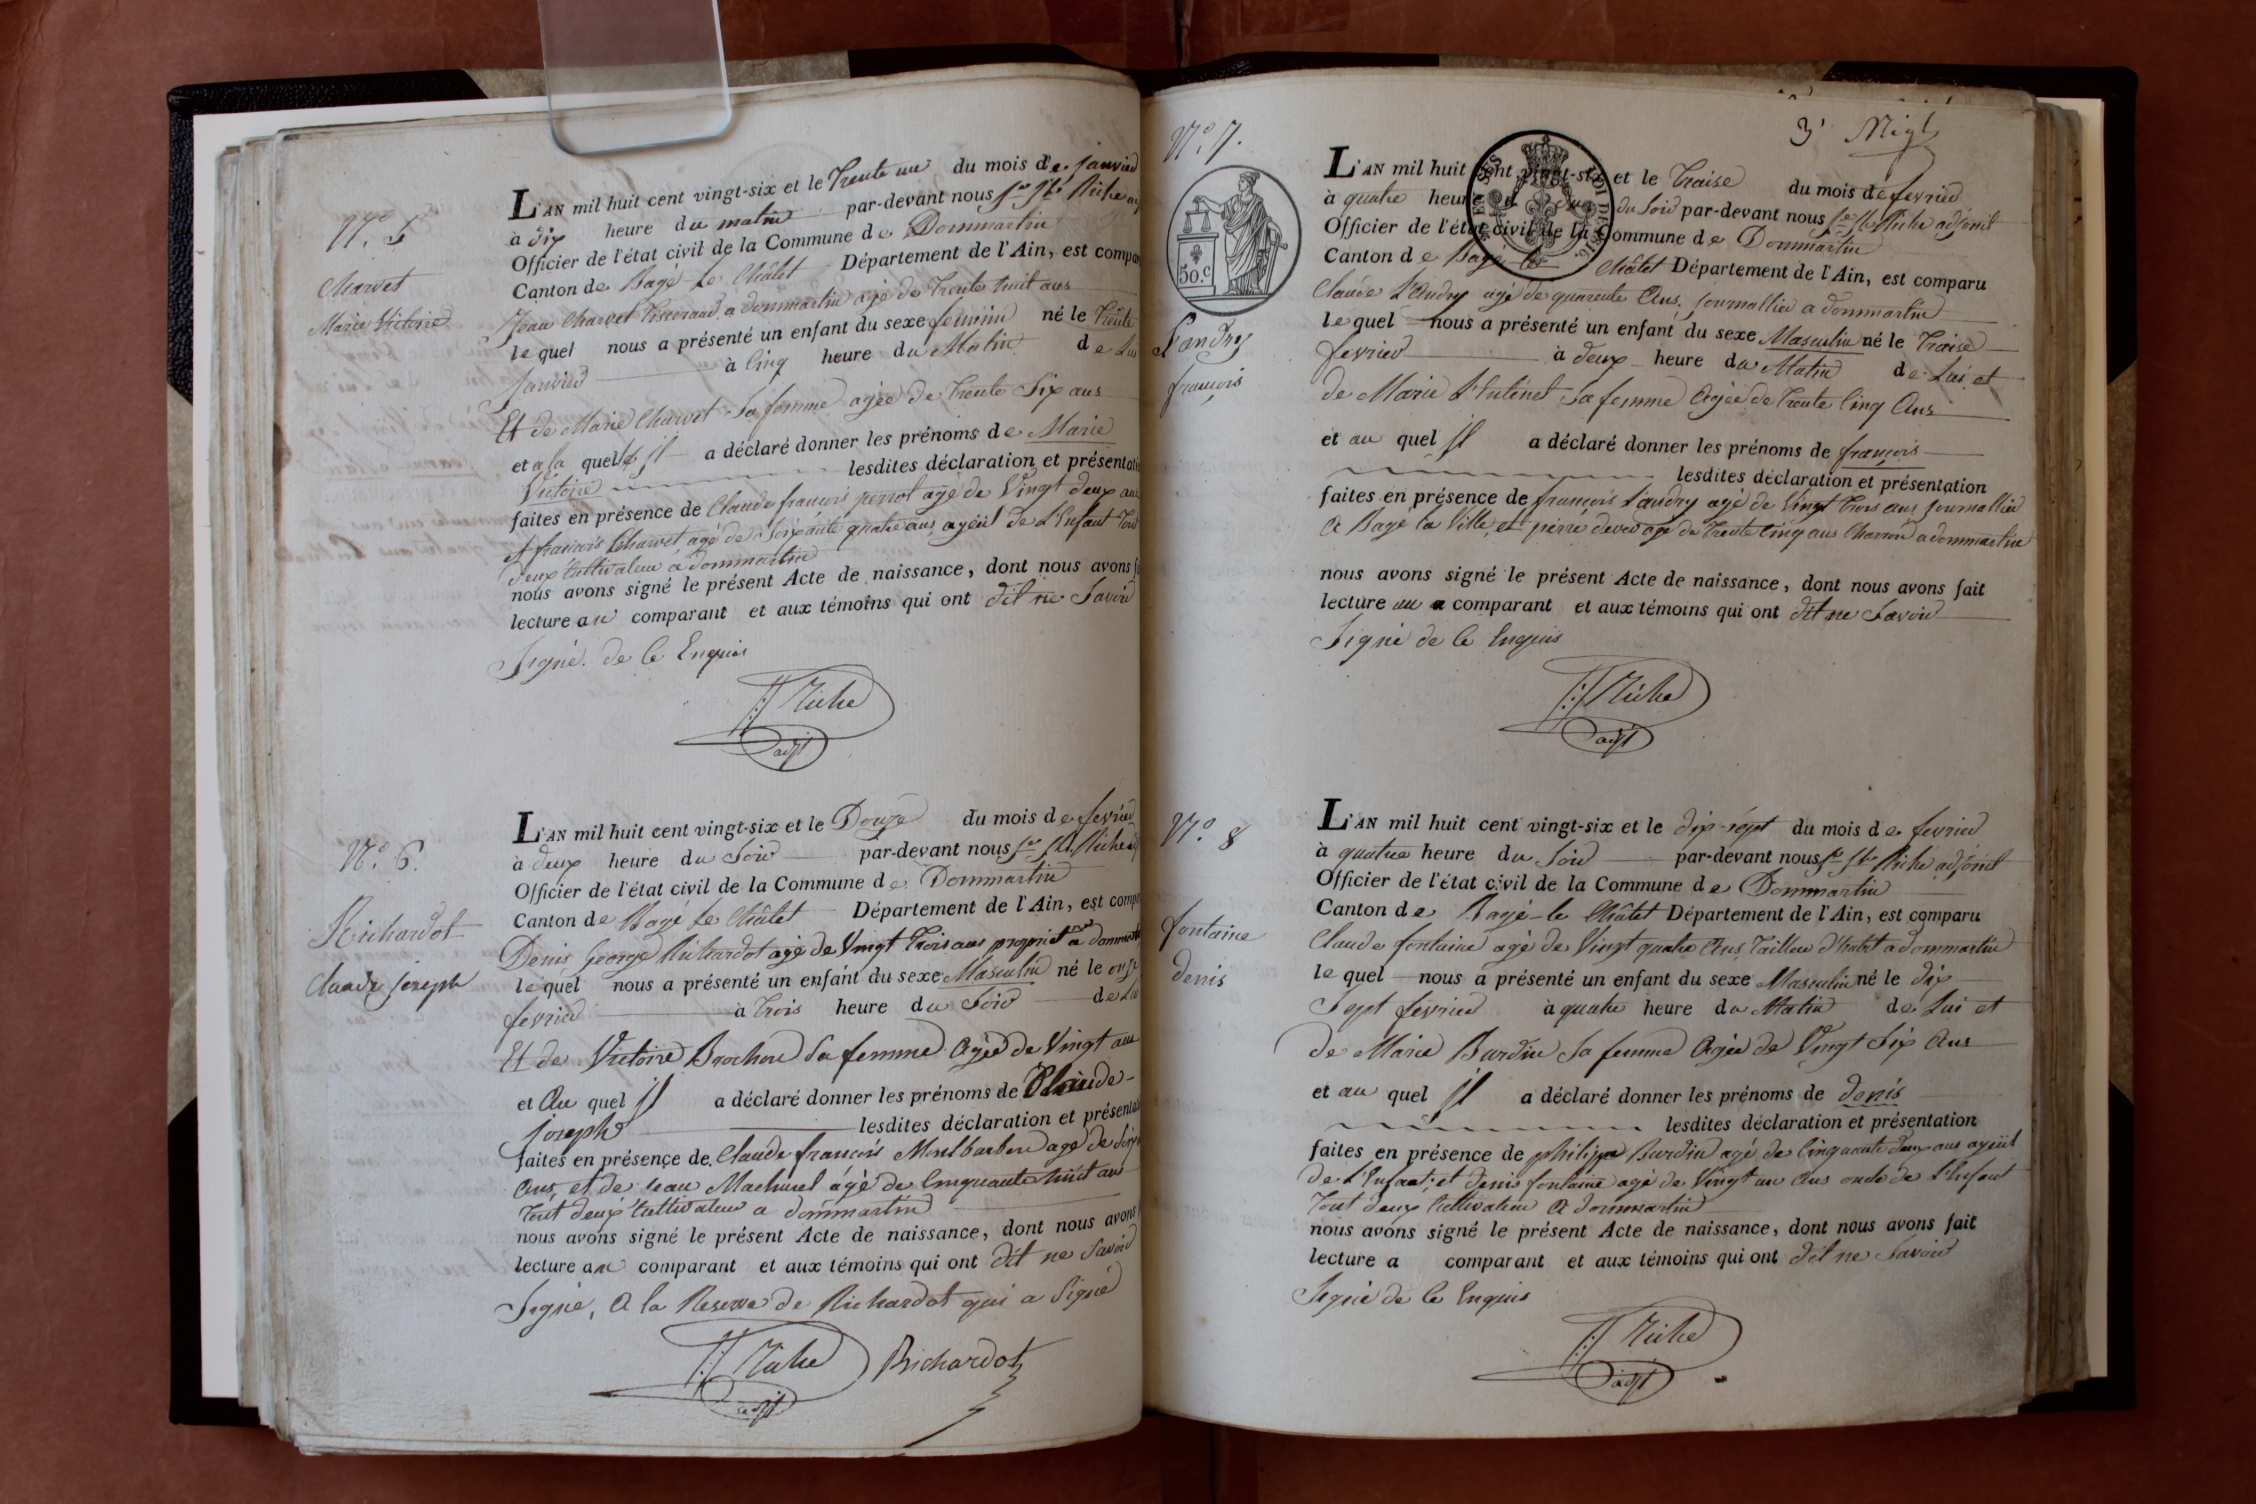 N.º 5
Charvet
Marie Victoire
L'AN mil huit cent vingt-six et le trente un du mois de janvier
à dix heure du matin par-devant nous Riche
Officier de l'état civil de la Commune de Dommartin
Canton de Bagé le Châtel Département de l'Ain, est compa
Jean Charvet tisserand a dommartin agé de trente huit ans
le quel nous a présenté un enfant du sexe feminin né le trente
janvier à cinq heure du Matin de Lui
Et de Marie Charvet sa femme agée de trente Six ans
et a la quelle il a déclaré donner les prénoms de Marie
Victoire lesdites déclaration et présentati
faites en présence de Claude françois perrot agé de Vingt deux ans
et françois Charvet agé de Soixante quatre ans ayeul de L'Enfant tout
deux Cultivateur a dommartin
nous avons signé le présent Acte de naissance, dont nous avons f
lecture au comparant et aux témoins qui ont dit ne Savoir
Signé. de Ce Enquis
Riche
adjt
N.º 6.
Richardot
Claude joseph
L'AN mil huit cent vingt-six et le Douze du mois de fevrier
à deux heure du Soir par-devant nous Riche
Officier de l'état civil de la Commune de Dommartin
Canton de Bagé Le Châtel Département de l'Ain, est comp
Denis George Richardot agé de Vingt trois ans propriet.re a dommartin
le quel nous a présenté un enfant du sexe Masculin né le onze
fevrier à trois heure du Soir de Lui
Et de Victoire Brochon Sa femme Agée de Vingt ans
et Au quel il a déclaré donner les prénoms de Claude
joseph lesdites déclaration et présenta
faites en présence de Claude françois Montbarbon agé de
Ans, et de jean Machurel agé de Cinquante huit ans
tout deux Cultivateur a dommartin
nous avons signé le présent Acte de naissance, dont nous avons
lecture au comparant et aux témoins qui ont dit ne Savoir
Signé, A la Reserve de Richardot qui a Signé
Riche Richardot
adjt
3.e
N.º 7.
50.C
Landry
françois
L'AN mil huit cent vingt-six et le traise du mois de fevrier
à quatre heure du Soir par-devant nous Riche adjoint
Officier de l'état civil de la Commune de Dommartin
Canton de Bagé le Châtel Département de l'Ain, est comparu
Claude Landry agé de quarente Ans, journallier a dommartin
le quel nous a présenté un enfant du sexe Masculin né le traise
fevrier à deux heure du Matin de Lui et
de Marie Sa femme Agée de trente Cinq Ans
et au quel il a déclaré donner les prénoms de françois
lesdites déclaration et présentation
faites en présence de françois Landry agé de Vingt trois ans journallier
A Bagé la Ville, et pierre agé de trente Cinq ans Charron a dommartin
nous avons signé le présent Acte de naissance, dont nous avons fait
lecture au comparant et aux témoins qui ont dit ne Savoir
Signé de Ce Enquis
Riche
adjt
N.º 8
fontaine
denis
L'AN mil huit cent vingt-six et le dix-sept du mois de fevrier
à quatre heure du Soir par-devant nous Riche adjoint
Officier de l'état civil de la Commune de Dommartin
Canton de Bagé-le Châtel Département de l'Ain, est comparu
Claude fontaine agé de Vingt quatre Ans tailleur d'habit a dommartin
le quel nous a présenté un enfant du sexe Masculin né le dix
Sept fevrier à quatre heure du Matin de Lui et
de Marie Burdin Sa femme Agée de Vingt Six Ans
et au quel il a déclaré donner les prénoms de denis
lesdites déclaration et présentation
faites en présence de philippe Burdin agé de Cinquante deux ans ayeul
de L'Enfant; et denis fontaine agé de Vingt un Ans oncle de L'Enfant
tout deux Cultivateur A dommartin
nous avons signé le présent Acte de naissance, dont nous avons fait
lecture a comparant et aux témoins qui ont dit ne Savoir
Signé de Ce Enquis
Riche
adjt